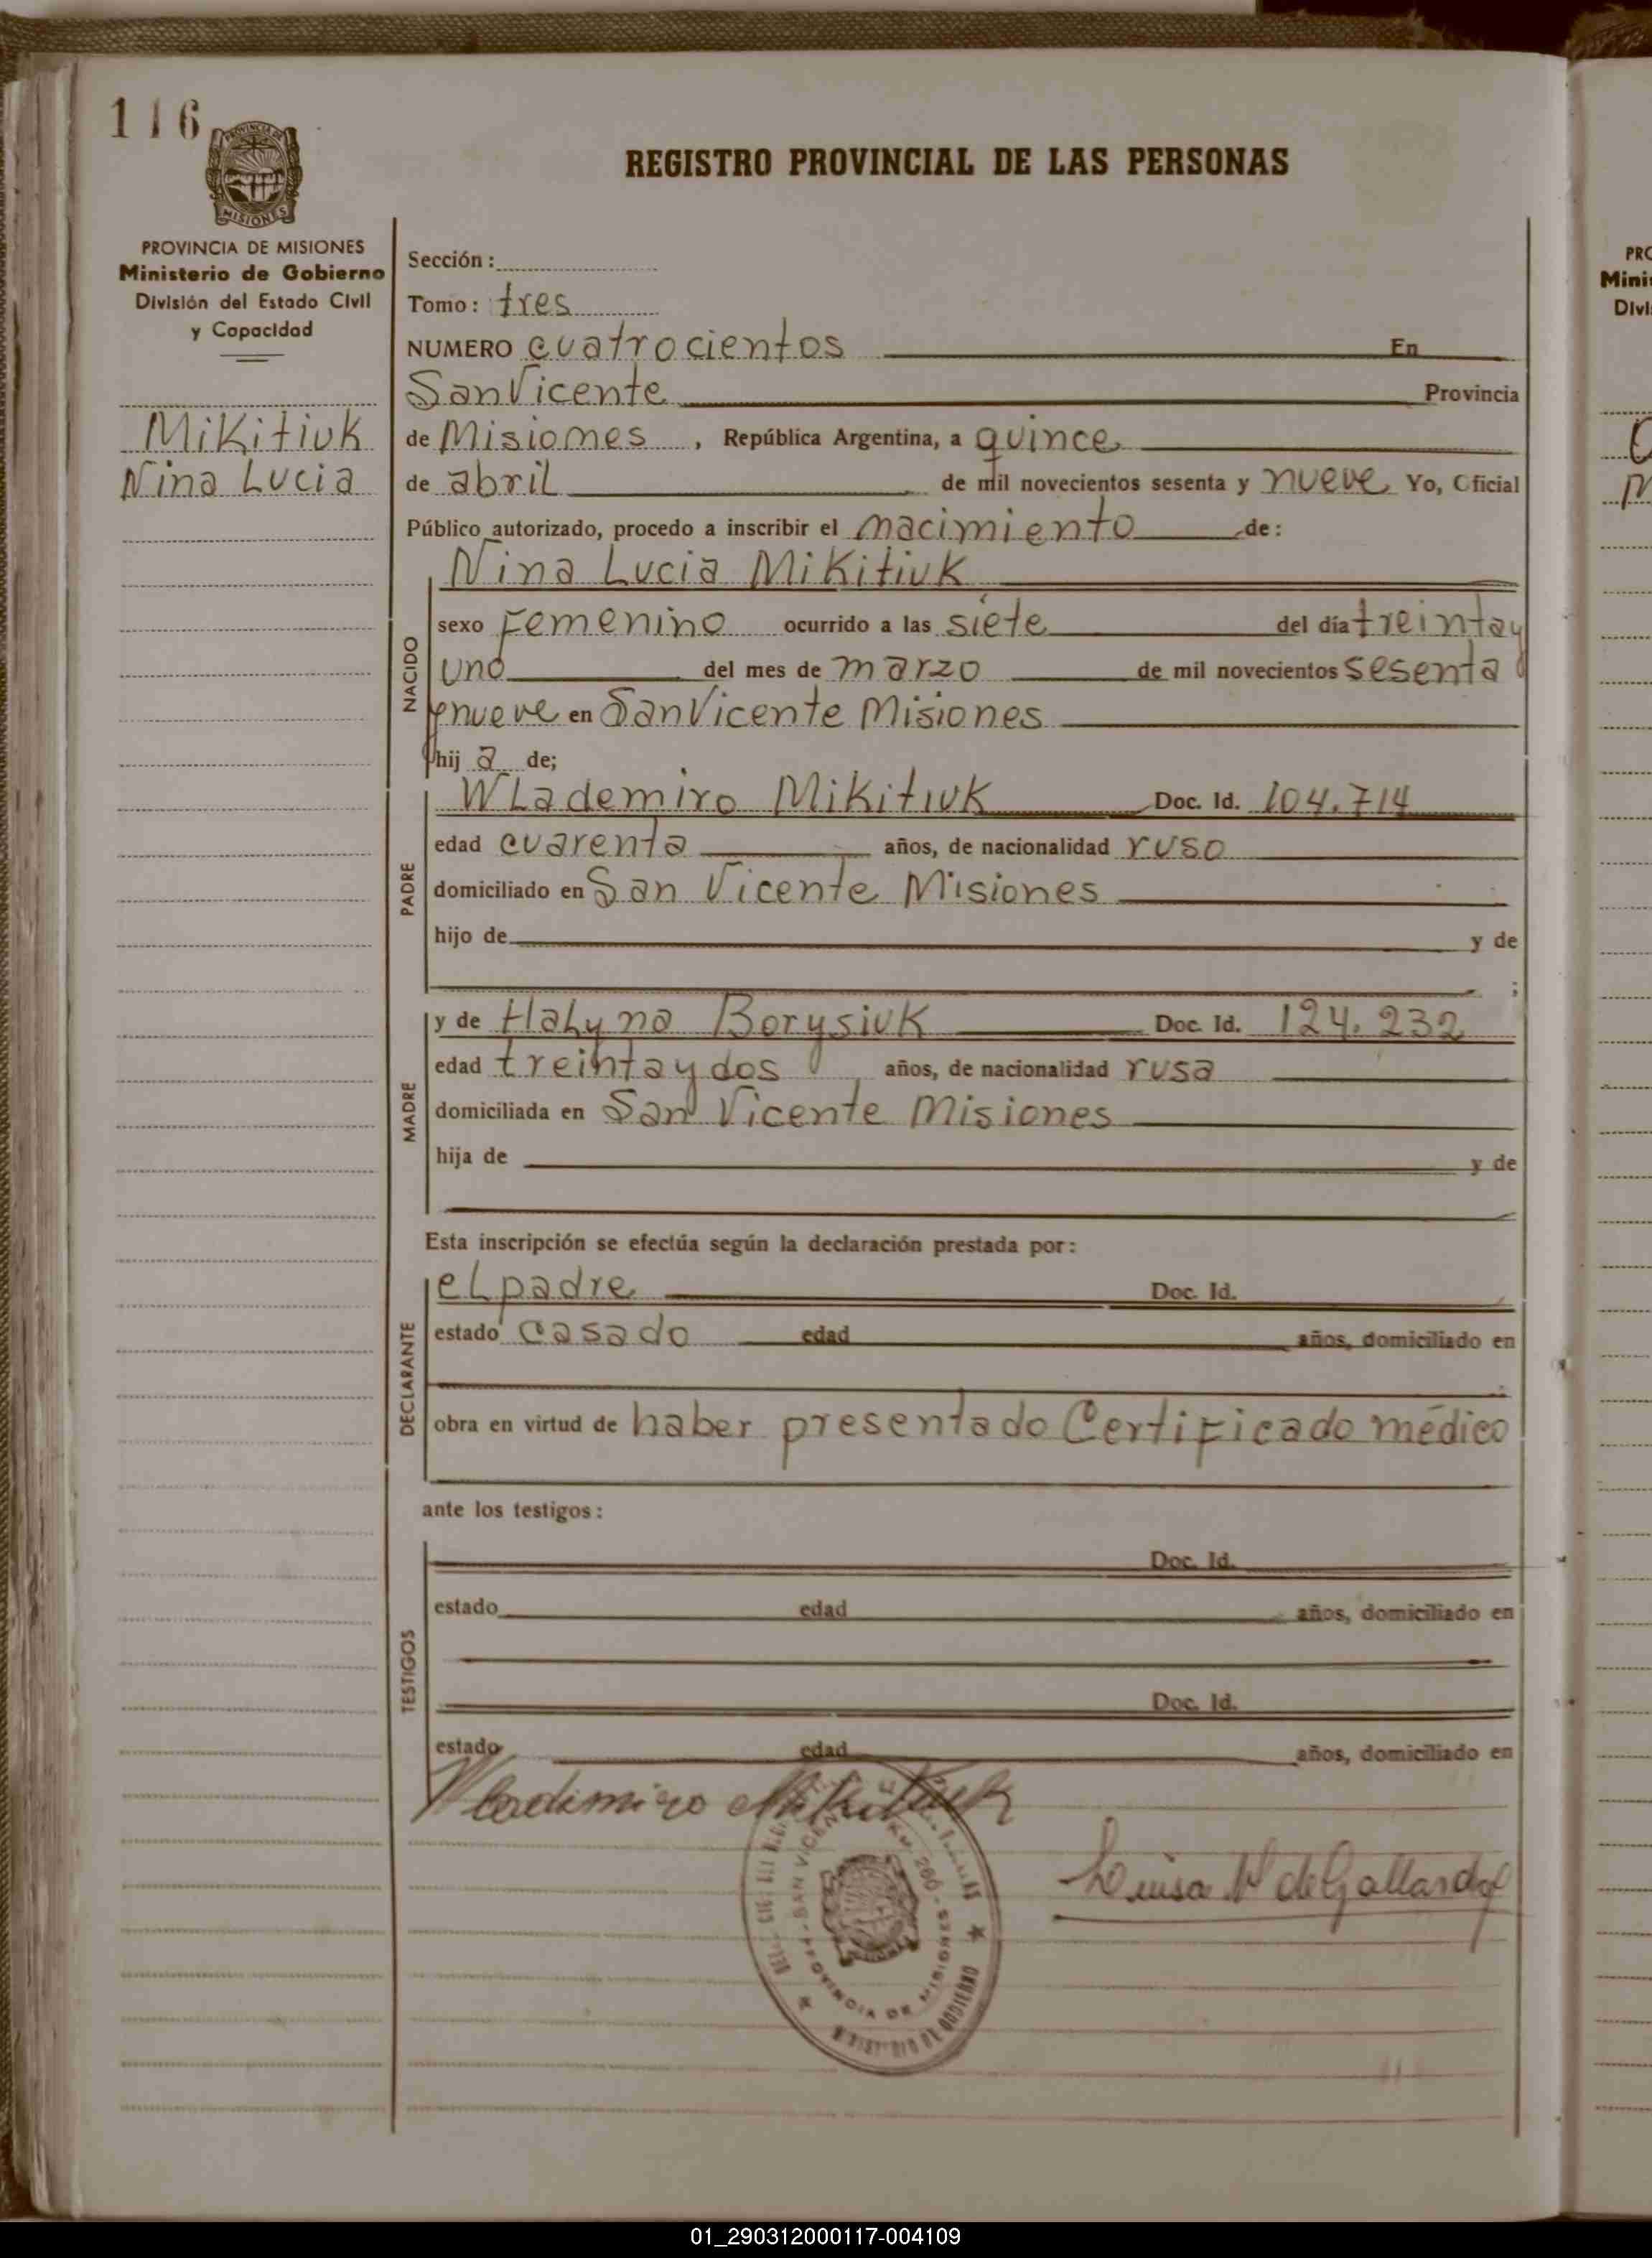 116
PROVINCIA DE
MISIONES
REGISTRO PROVINCIAL DE LAS PERSONAS
PROVINCIA DE MISIONES
Ministerio de Gobierno
División del Estado Civil
y Capacidad
Mikitiuk
Nina Lucia
Sección:
Tomo: tres
NUMERO cuatrocientos En
San Vicente Provincia
de Misiones, República Argentina, a quince
de abril de mil novecientos sesenta y nueve Yo, Oficial
Público autorizado, procedo a inscribir el nacimiento de:
NACIDO
Nina Lucia Mikitiuk
sexo Femenino ocurrido a las siete del día treinta y
uno del mes de marzo de mil novecientos sesenta
y nueve en San Vicente Misiones
hij a de;
PADRE
Wlademiro Mikitiuk Doc. Id. 104.714
edad cuarenta años, de nacionalidad ruso
domiciliado en San Vicente Misiones
hijo de y de
;
MADRE
y de Halyna Borysiuk Doc. Id. 124.232
edad treinta y dos años, de nacionalidad rusa
domiciliada en San Vicente Misiones
hija de y de
Esta inscripción se efectúa según la declaración prestada por:
DECLARANTE
el padre Doc. Id.
estado casado edad años, domiciliado en
obra en virtud de haber presentado Certificado médico
ante los testigos:
TESTIGOS
Doc. Id.
estado edad años, domiciliado en
Doc. Id.
estado edad años, domiciliado en
Wladimiro Mikitiuk
SAN VICENTE
PROVINCIA DE MISIONES
MINISTERIO DE GOBIERNO
Luisa N de Gallardo
PRO
Minis
Divi
01_290312000117-004109